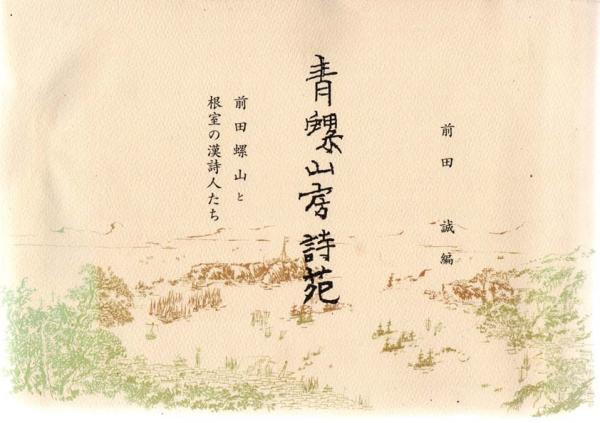 前田　誠編
青螺山房詩苑
前田螺山と
根室の漢詩人たち